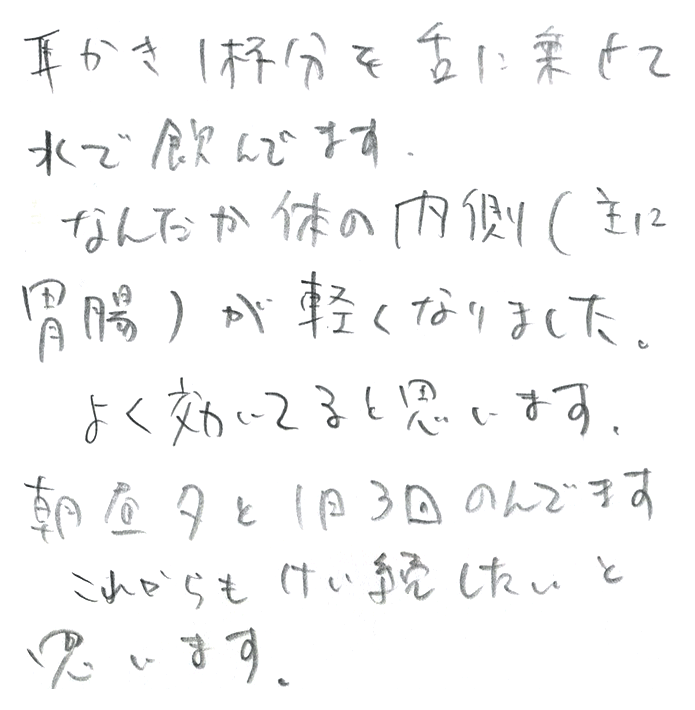 耳かき1杯分を舌に乗せて
水で飲んでます.
なんだか体の内側(主に
胃腸)が軽くなりました。
よく効いてると思います.
朝昼夕と1日3回のんでます
これからもけい続したいと
思います.